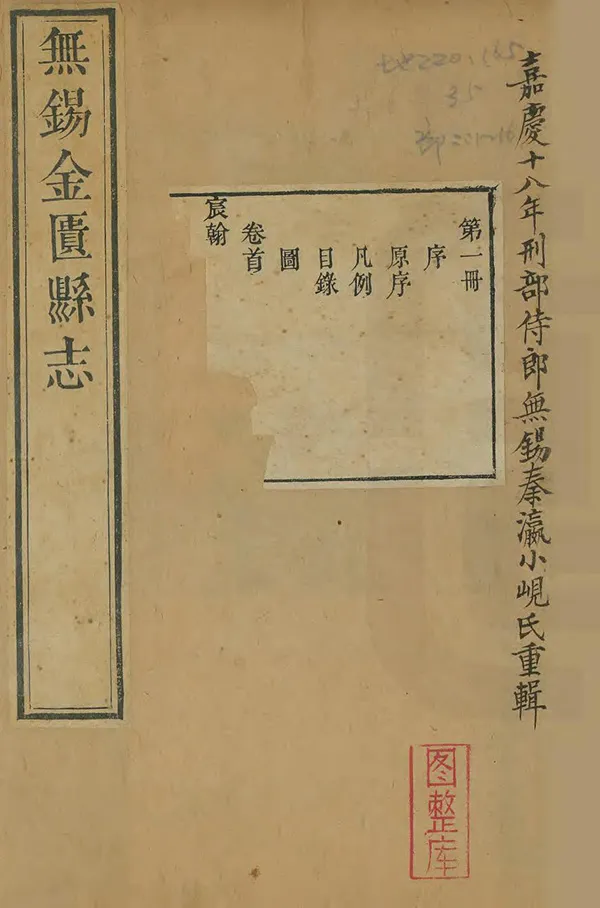 嘉慶十八年刑部侍郎無錫秦瀛小峴氏重輯
第一冊
序
原序
凡例
目錄
圖
卷首
宸翰
無錫金匱縣志
图整库